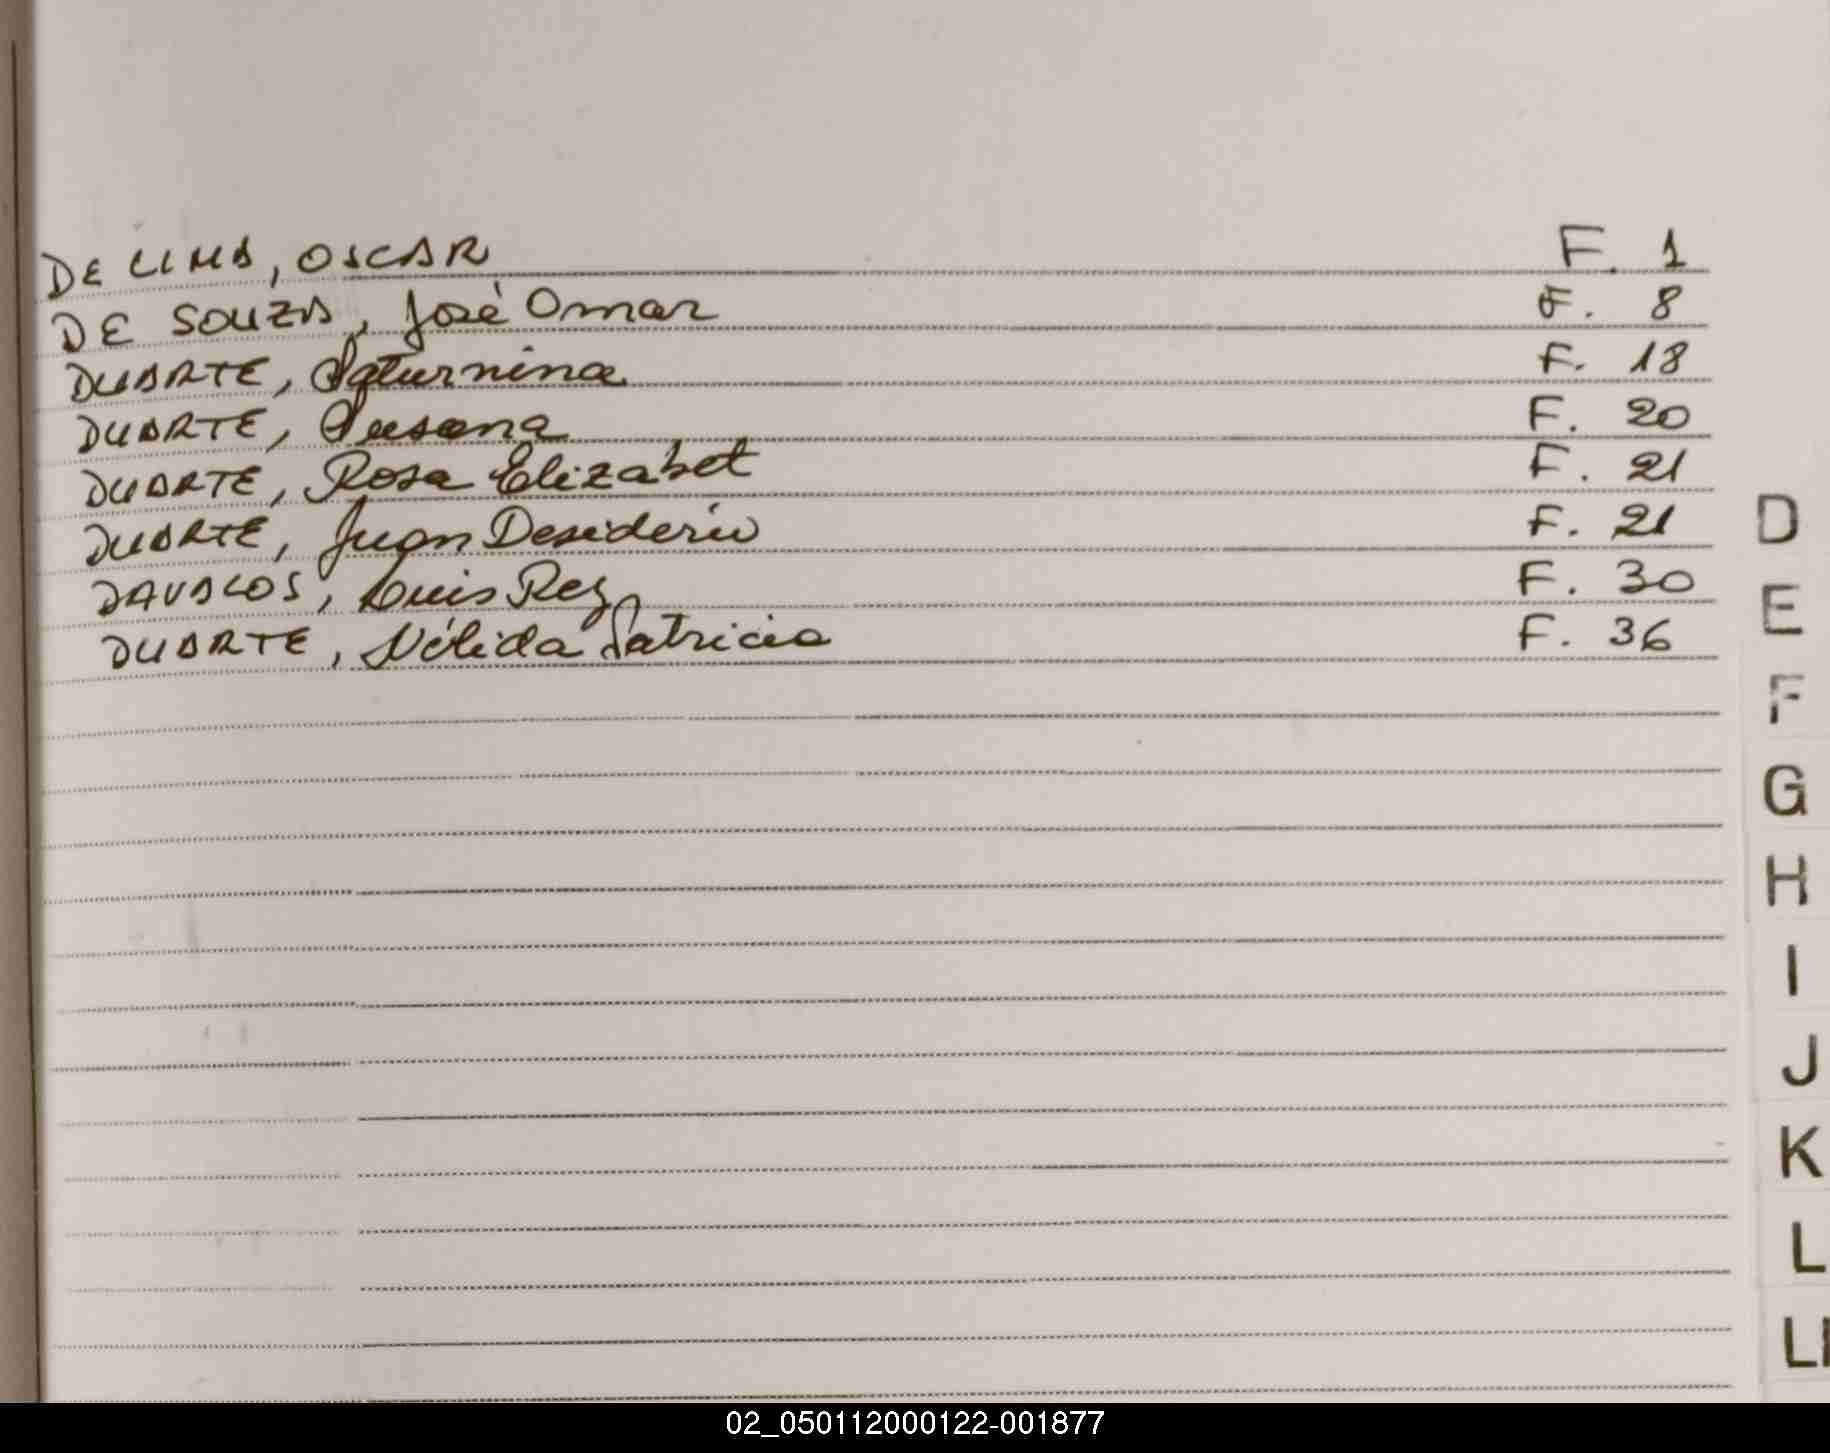 DE LIMA, OSCAR F. 1
DE SOUZA, José Omar F. 8
DUARTE, Saturnina F. 18
DUARTE, Susana F. 20
DUARTE, Rosa Elizabet F. 21
DUARTE, Juan Desiderio F. 21
DAVALOS, Luis Rey F. 30
DUARTE, Nélida Patricia F. 36
D
E
F
G
H
I
J
K
L
Ll
02_050112000122-001877